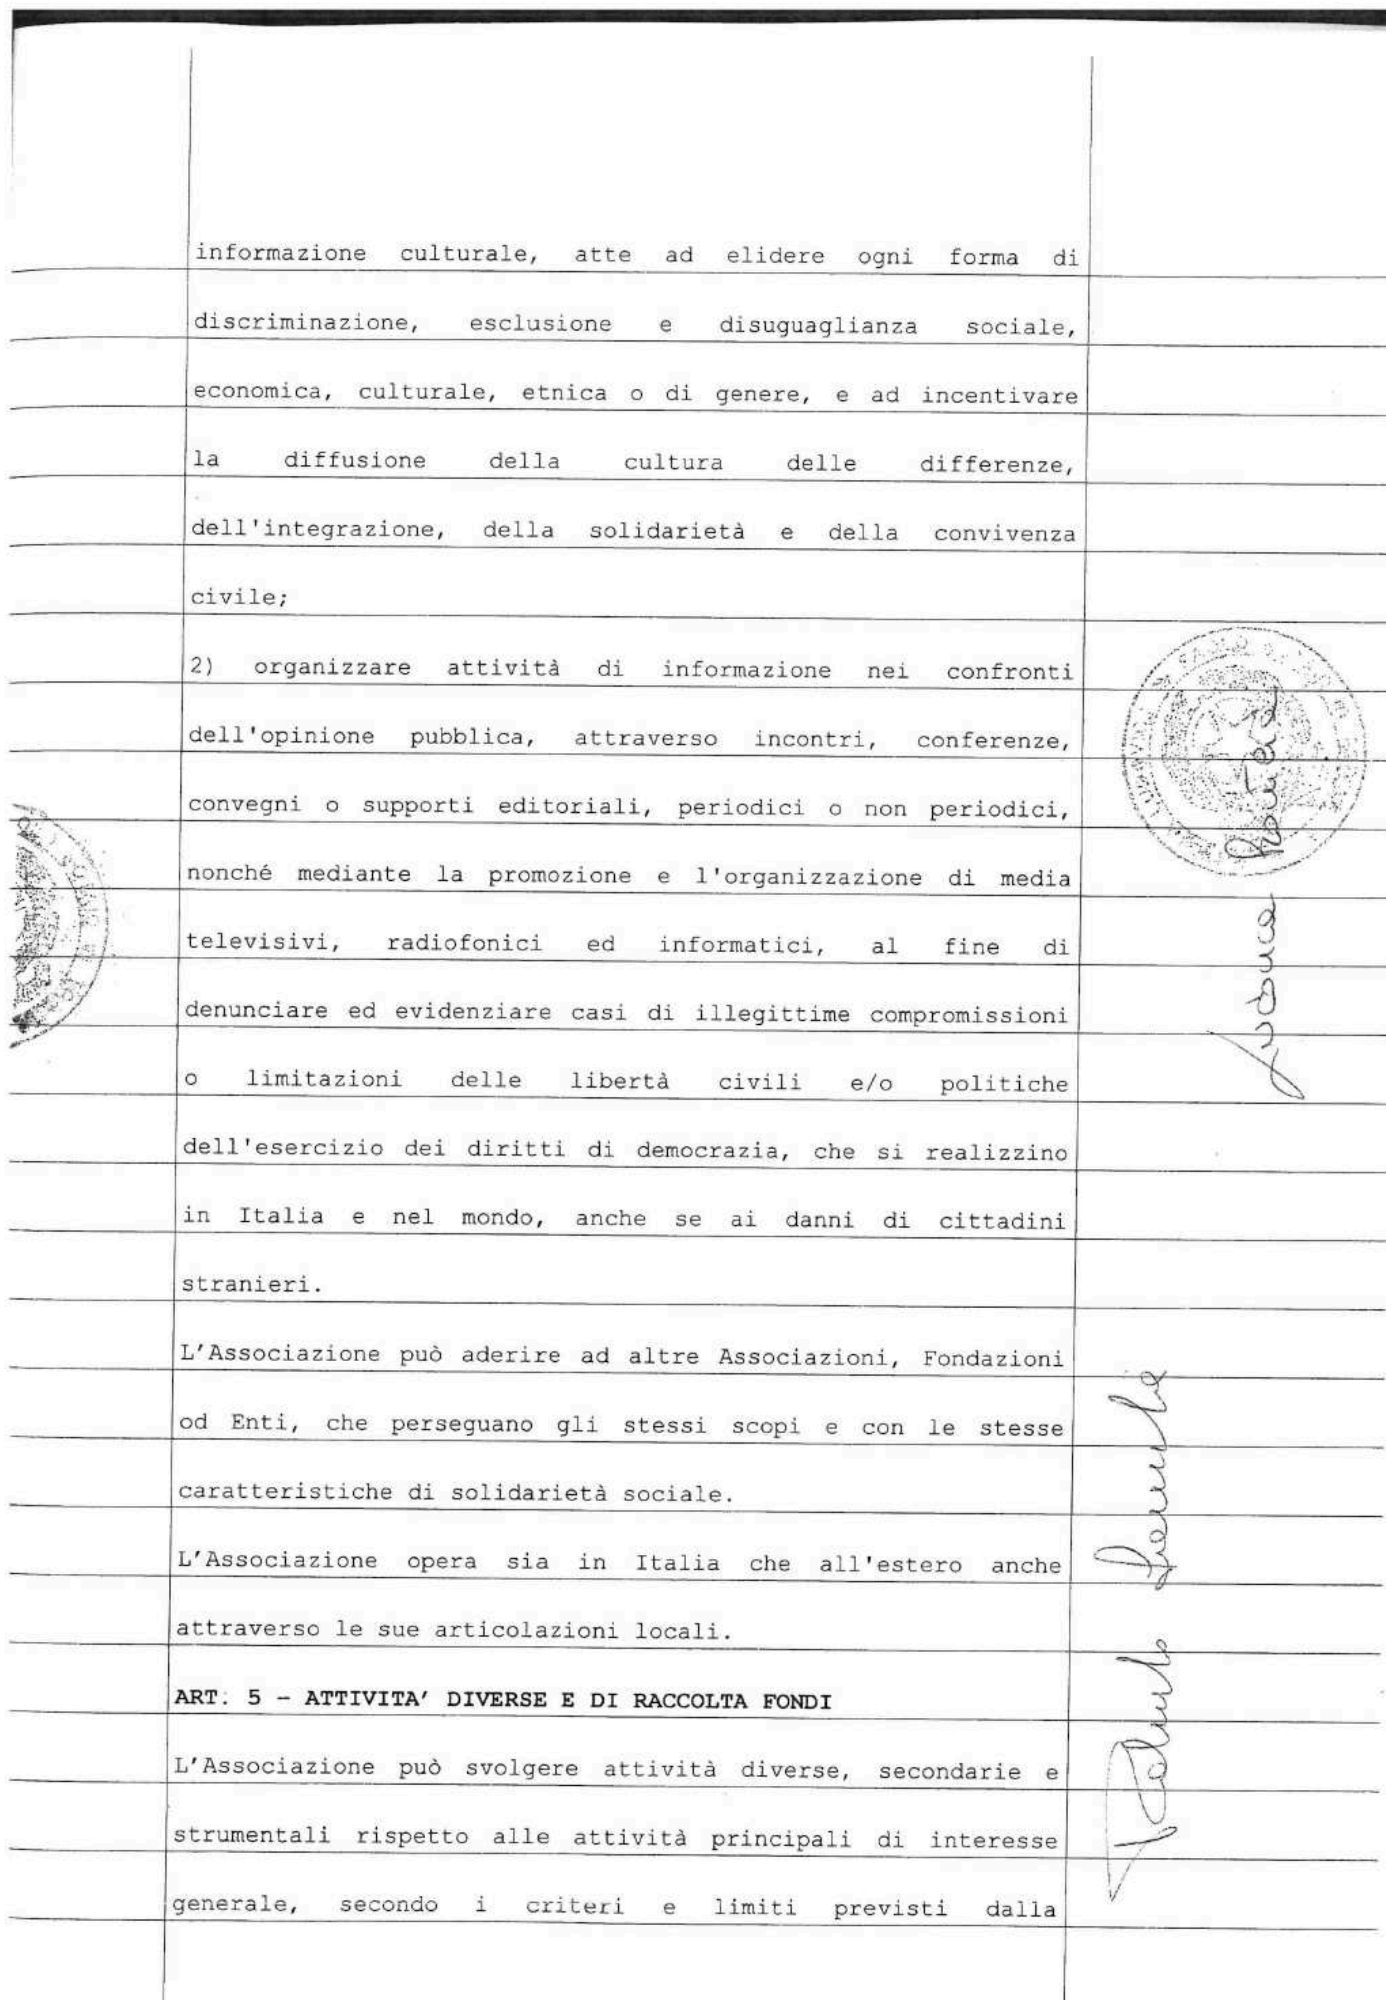 informazione culturale, atte ad elidere ogni forma di
discriminazione, esclusione e disuguaglianza sociale,
economica, culturale, etnica o di genere, e ad incentivare
la diffusione della cultura delle differenze,
dell'integrazione, della solidarietà e della convivenza
civile;
2) organizzare attività di informazione nei confronti
dell'opinione pubblica, attraverso incontri, conferenze,
convegni o supporti editoriali, periodici o non periodici,
nonché mediante la promozione e l'organizzazione di media
televisivi, radiofonici ed informatici, al fine di
denunciare ed evidenziare casi di illegittime compromissioni
o limitazioni delle libertà civili e/o politiche
dell'esercizio dei diritti di democrazia, che si realizzino
in Italia e nel mondo, anche se ai danni di cittadini
stranieri.
L'Associazione può aderire ad altre Associazioni, Fondazioni
od Enti, che perseguano gli stessi scopi e con le stesse
caratteristiche di solidarietà sociale.
L'Associazione opera sia in Italia che all'estero anche
attraverso le sue articolazioni locali.
ART. 5 - ATTIVITA' DIVERSE E DI RACCOLTA FONDI
L'Associazione può svolgere attività diverse, secondarie e
strumentali rispetto alle attività principali di interesse
generale, secondo i criteri e limiti previsti dalla